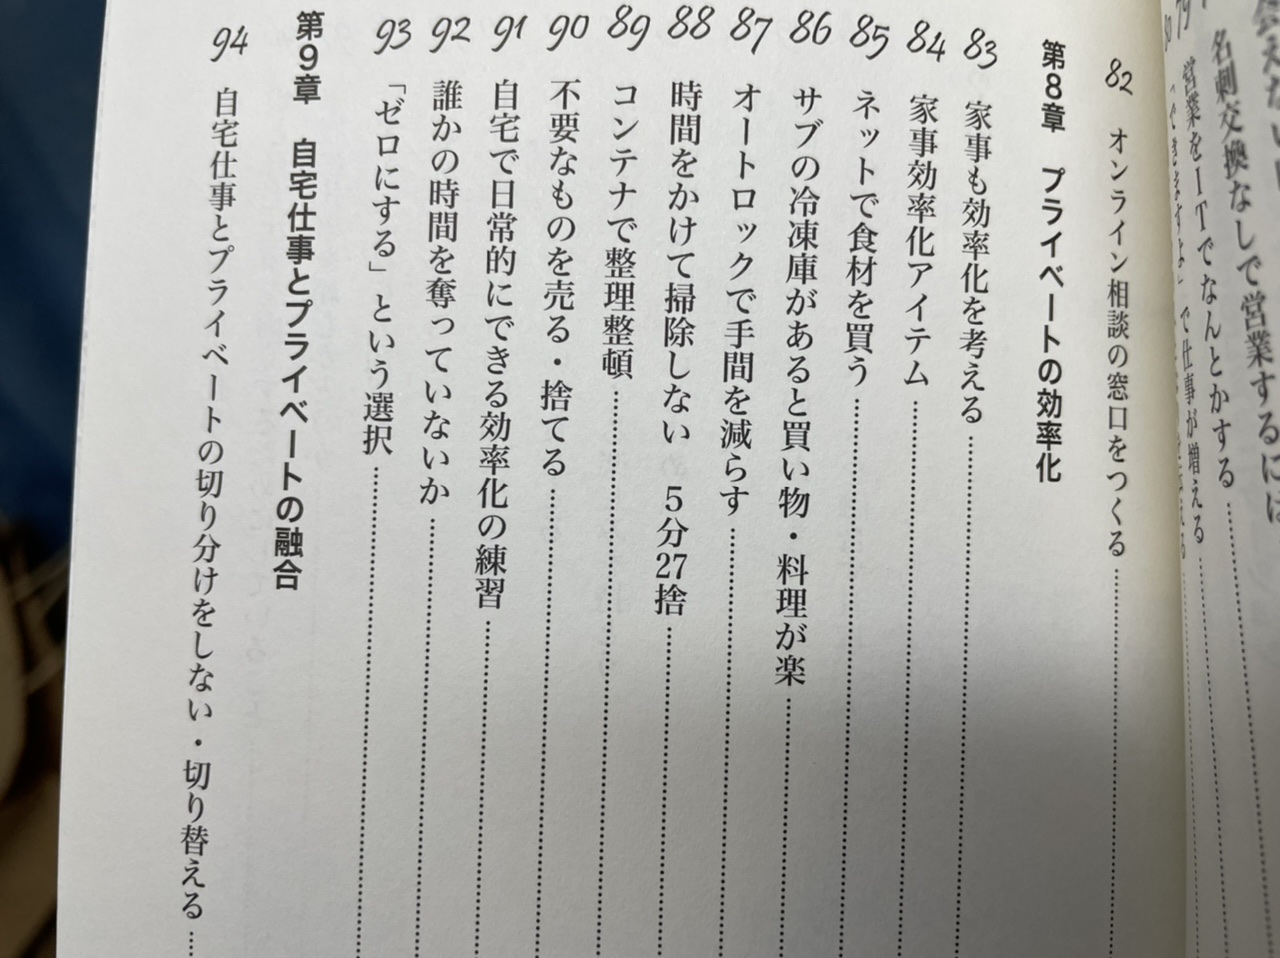 名刺交換なしで営業するには
営業をITでなんとかする
82 オンライン相談の窓口をつくる
第8章 プライベートの効率化
83 家事も効率化を考える
84 家事効率化アイテム
85 ネットで食材を買う
86 サブの冷凍庫があると買い物・料理が楽
87 オートロックで手間を減らす
88 時間をかけて掃除しない 5分27捨
89 コンテナで整理整頓
90 不要なものを売る・捨てる
91 自宅で日常的にできる効率化の練習
92 誰かの時間を奪っていないか
93 「ゼロにする」という選択
第9章 自宅仕事とプライベートの融合
94 自宅仕事とプライベートの切り分けをしない・切り替える